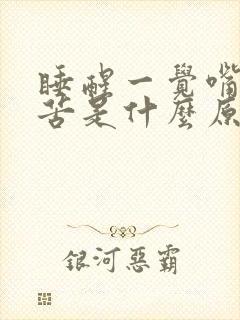 睡醒一覺嘴
苦是什麼原
銀河惡霸